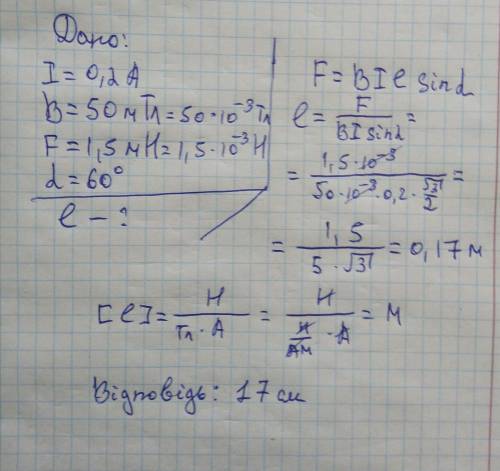 Дано:
I = 0,2 А
B = 50 мТл = 50·10⁻³ Тл
F = 1,5 мН = 1,5·10⁻³ Н
α = 60°
l - ?
F = BIl sinα
l = F/(BI sinα) =
= (1,5·10⁻³)/(50·10⁻³·0,2·√3/2) =
= 1,5/(5·√3) = 0,17 м
[l] = Н/(Тл·А) = Н/(Н/(Ам)·А) = м
Відповідь: 17 см